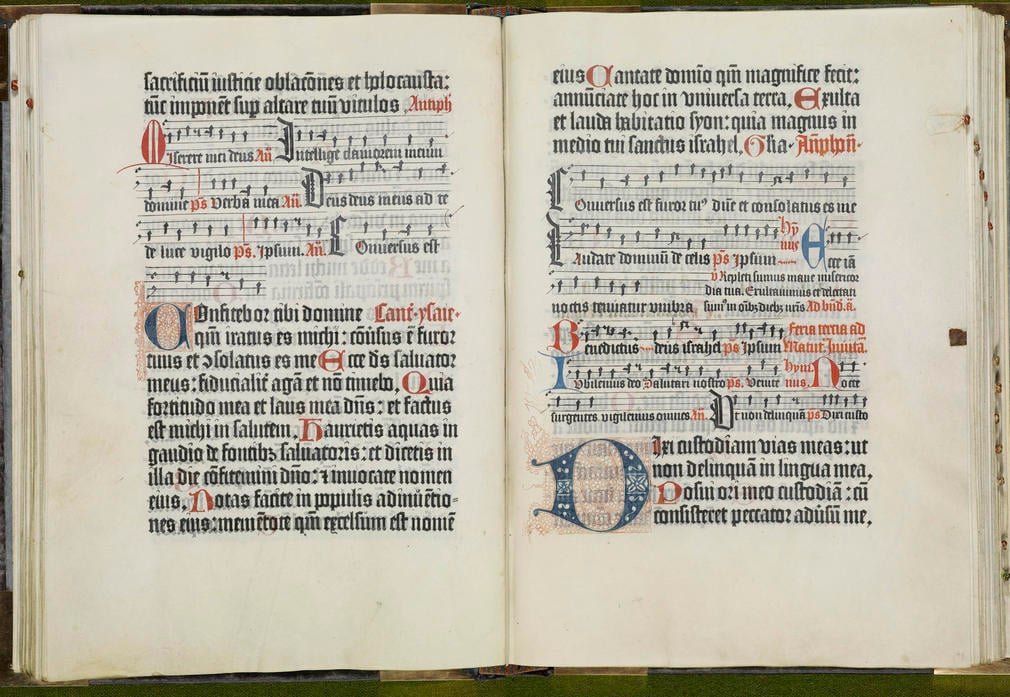 sacrificiū iusticie oblacōnes et holocausta:
tūc imponēt sup altare tuū vitulos Antiph
Miserere mei deus Añ Intellige clamorem meum
domine ps Verba mea Añ. Deus deus meus ad te
de luce vigilo Ps. Ipsum. Añ. Conuersus est
COnfitebor tibi domine Cant ysaie
qm̄ iratus es michi: cōuersus ē furor
tuus et ɔsolatus es me Ecce ds saluator
meus: fiducialit̄ agā et nō timebo, Quia
fortitudo mea et laus mea dn̄s: et factus
est michi in salutem, Haurietis aquas in
gaudio de fontibz saluatoris: et dicetis in
illa die cōfitemini dn̄o: ⁊ inuocate nomen
eius, Notas facite in ppulis adinuētio=
nes eius: memētote qm̄ excelsum est nomē
eius Cantate domīo qm̄ magnifice fecit:
annūciate hoc in vniuersa terra, Exulta
et lauda habitatio syon: quia magnus in
medio tui sanctus israhel, Gl̄ia Añphon
COnuersus est furor tu⁹ dn̄e et consolatus es me
LAudate dominū de celis ps Ipsum hy
nus Ecce iā
ꝟ Repleti sumus mane misericor
dia tua. Exultauimus et delectati
noctis tenuatur vmbra sum⁹ in oībz diebz nr̄is Ad bn̄d. ā.
Benedictus deus israhel ps Ipsum feria tercia ad
Matut Inuita.
Iubilemus deo Salutari nostro ps. Venite hym
nus, Nocte
surgentes vigilemus omnes Añ. Vt non delinquā ps Dixi custo
DIxi custodiam vias meas: ut
non delinquā in lingua mea,
Posui ori meo custodiā: cū
consisteret peccator adūsū me,